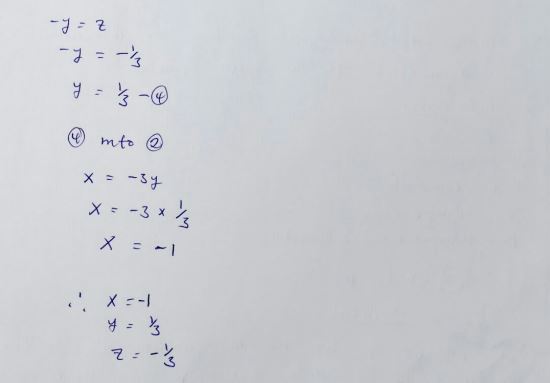 -y = z
-y = -1/3
y = 1/3 - ④
④ into ②
x = -3y
x = -3 × 1/3
x = -1
∴ x = -1
y = 1/3
z = -1/3